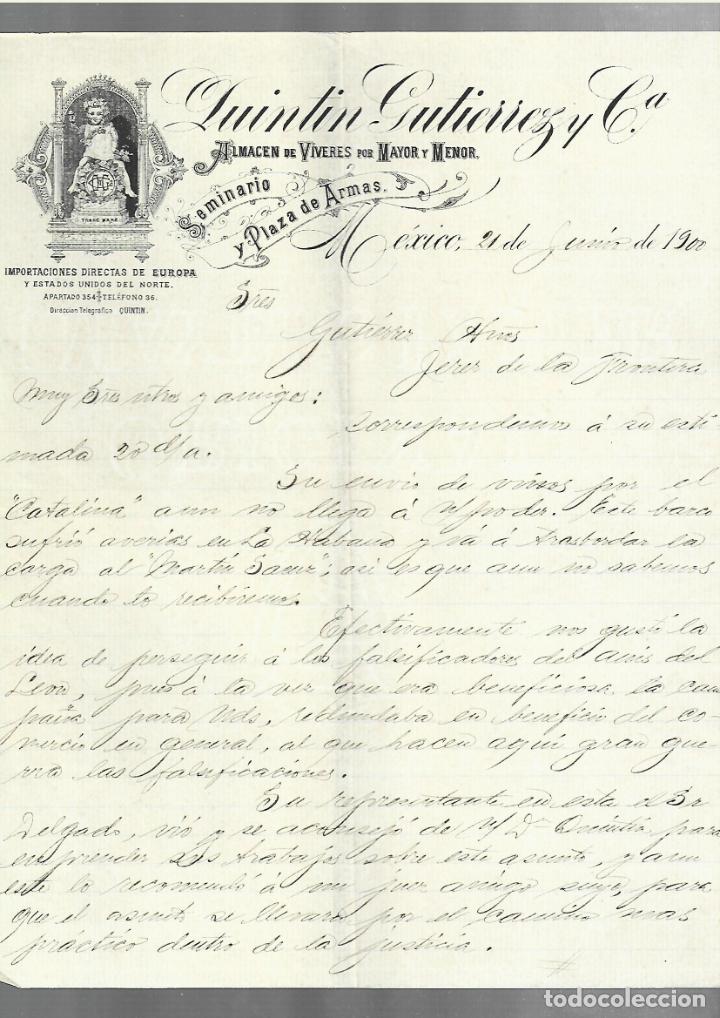 Quintin Gutierrez y Cª
ALMACEN DE VIVERES POR MAYOR Y MENOR.
Seminario
y Plaza de Armas.
México, 21 de Junio de 1900
TRADE MARK
IMPORTACIONES DIRECTAS DE EUROPA
Y ESTADOS UNIDOS DEL NORTE.
APARTADO 354 TELÉFONO 36.
Direccion Telegráfica QUINTIN.
Sres
Gutiérrez Hnos
Jerez de la Frontera
Muy Sres ntros y amigos:
Correspondemos á su esti-
mada 20 d/a.
Su envio de vinos por el
"Catalina" aun no llega á n/poder. Este barco
sufrió averias en La Habana y vá á trasbordar la
carga al "Martin Saenz"; asi es que aun no sabemos
cuando lo recibiremos.
Efectivamente nos gustó la
idea de perseguir á los falsificadores del anis del
Leon, pues á la vez que era beneficiosa la cam
paña para Vds, redundaba en beneficio del co-
mercio en general, al que hacen aqui gran gue-
rra las falsificaciones.
Su representante en esta el Sr
Delgado, vió y se aconsejó de n/ Dn Quintin para
emprender sus trabajos sobre este asunto, y aun
este lo recomendó á un juez amigo suyo, para
que el asunto se llevara por el camino mas
práctico dentro de la justicia.
todocoleccion.net